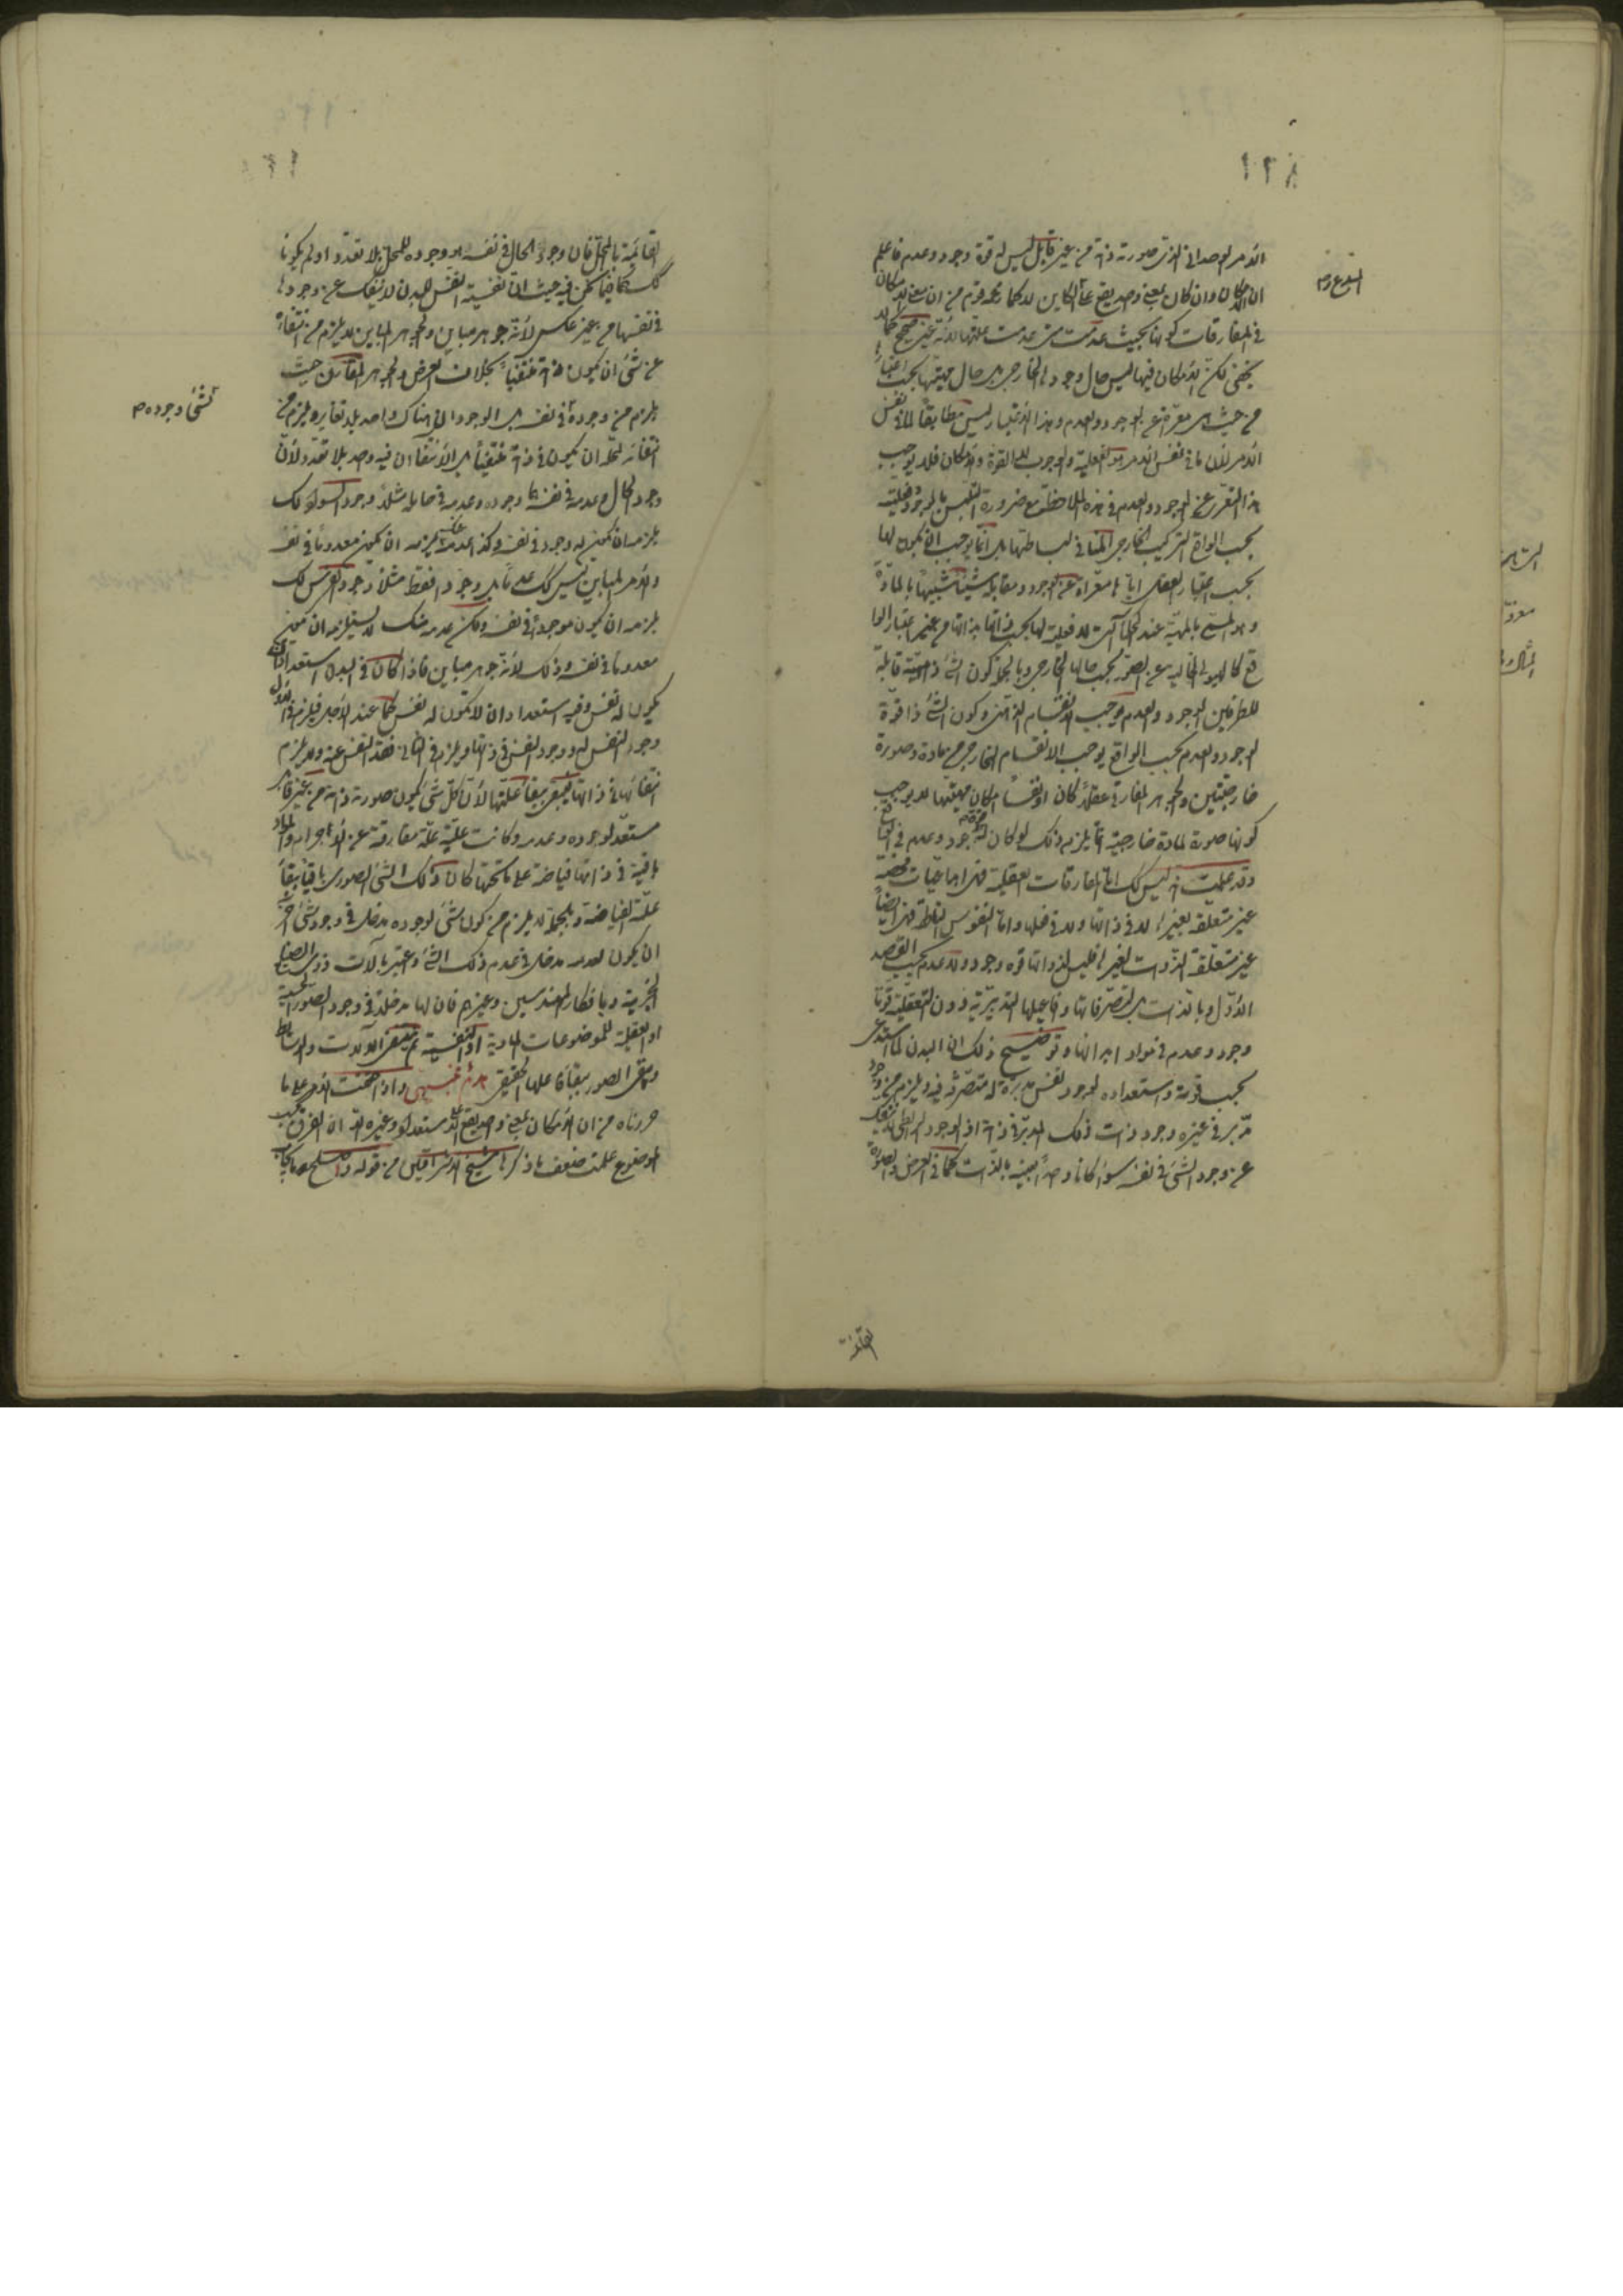 ١٢٨
الأمر الوحداني الذي صورة ذاته من غير قابل ليس له قوة وجود وعدم فاعلم
ان الامكان وان كان بمعنى واحد يقع على الكاين لا كما زعمه قوم من ان معنى الامكان
في المفارقات كونها بحيث عدمت متى عدمت علتها لانه غير صحيح كما لا
يخفى لكن الامكان فيها ليس حال وجودها الخارجي بل حال مهيتها بحسب اعتبار
من حيث هي معراة عن الوجود والعدم وهذا الاعتبار ليس مطابقا لما في نفس
الأمر لان ما في نفس الامر هو الفعلية والوجوب لا القوة والامكان فلا يوجب
هذا التعري عن الوجود والعدم في هذه الملاحظة مع ضرورة التلبس بالوجود وفعليته
بحسب الواقع التركيب الخارجي المنافي لبساطتها بل انما يوجب ان يكون لها
بحسب اعتبار العقل اياها معراة عن الوجود ومقابله شيئا شبيها بالمادة
وهو المسمى بالمهية عند الحكماء التي لا فعلية لها بحسب ذاتها بذاتها مع غير اعتبار الوا
قع كالهيولى الخالية عن الصور بحسب حالها الخارجي وبالجملة كون الشئ ذا مهية قابلة
للطرفين الوجود والعدم يوجب الانقسام الذهني وكون الشئ ذا قوة
الوجود والعدم بحسب الواقع يوجب الانقسام الخارجي من مادة وصورة
خارجيتين والجوهر المفارق عقلا كان او نفسا امكان مهيتها لا يوجب
كونها صورة لمادة خارجية انما يلزم ذلك لو كان له قوة وجود وعدم في الواقع
وقد علمت انه ليس كك اما المفارقات العقلية فهي ابداعيات محضة
غير متعلقة بغيرها لا في ذاتها ولا في فعلها واما النفوس الناطقة فهي ايضا
غير متعلقة الذوات لغيرها فليس لذواتها قوة وجود ولا عدم بحسب القصد
الأول وبالذات بل لتصرفاتها وافاعيلها التدبيرية دون التعقلية قوتا
وجود وعدم في مواد ابدانها وتوضيح ذلك ان البدن لما استدعى
بحسب قوته واستعداده لوجود نفس مدبرة له متصرفة فيه ويلزم من وجود
مدبر في غيره وجود ذات ذلك المدبر في ذاته اذ الوجود الرابطي لا ينفك
عن وجود الشئ في نفسه سواء كانا واحدا بعينه بالذات كما في العرض والصورة
القائمة
القائمة بالمحل فان وجود الحال في نفسه هو وجوده للمحل بلا تعدد او لم يكونا
كك كما فيما نحن فيه حيث ان نفسية النفس للبدن لا ينفك عن وجودها
في نفسها من غير عكس لأنه جوهر مباين والجوهر المباين لا يلزم من انتفائه
عن شئ ان يكون في ذاته منتفيا بخلاف العرض والجوهر المقارن حيث
يلزم من وجوده في نفسه بل الوجودان هناك واحد بلا تغاير ويلزم من
انتفائه لمحله ان يكون في ذاته منتفيا بل الانتفاءان فيه واحد بلا تعدد ولأن
وجود الحال وعدمه في نفسه هما وجوده وعدمه في حامله مثلا وجود السواد لك
يلزمه ان يكون له وجود في نفسه وكذا عدمه عنك يلزمه ان يكون معدوما في نفسه
والأمر المباين ليس كك عدما بل وجودا فقط مثلا وجود الفرس لك
يلزمه ان يكون موجودا في نفسه ولكن عدمه منك لا يستلزمه ان يكون
معدوما في نفسه وذلك لأنه جوهر مباين فاذا كان في البدن استعداد ان
يكون له نفس وفيه استعداد ان لا تكون له نفس كما عند الأجل فيلزم في الأول
وجود النفس له ووجود النفس في ذاتها ويلزم في الثاني فقد النفس عنه ولا يلزم
انتفائها في ذاتها فيبقى ببقاء علتها لأن كل شئ يكون صورة ذاته من غير قابل
مستعد لوجوده وعدمه وكانت علته علة مفارقة عن الأجرام والمواد
باقية في ذاتها فياضة على ما تحتها كان ذلك الشئ الصوري باقيا ببقاء
علته الفياضة وبالجملة لا يلزم من كون شئ لوجوده مدخل في وجود شئ آخر
ان يكون لعدمه مدخل في عدم ذلك الشئ واعتبر بآلات ذوي الصنايع
الجزئية وبافكار المهندسين وغيرهم فان لها مدخلا في وجود الصور الحسية
او العقلية للموضوعات المادية او النفسية ثم تنعدم الآلات والوسائط
وتبقى الصور ببقاء عللها الحقيقي هدم تنبيهي واذا حققت الأمر على ما
حررناه من ان الامكان بمعنى واحد يقع على المستعد له وغيره الا ان الفرق بحسب
الموضوع علمت ضعف ما ذكره شيخ الاشراقيين من قوله وان اصطلح
الشئ وجوده م